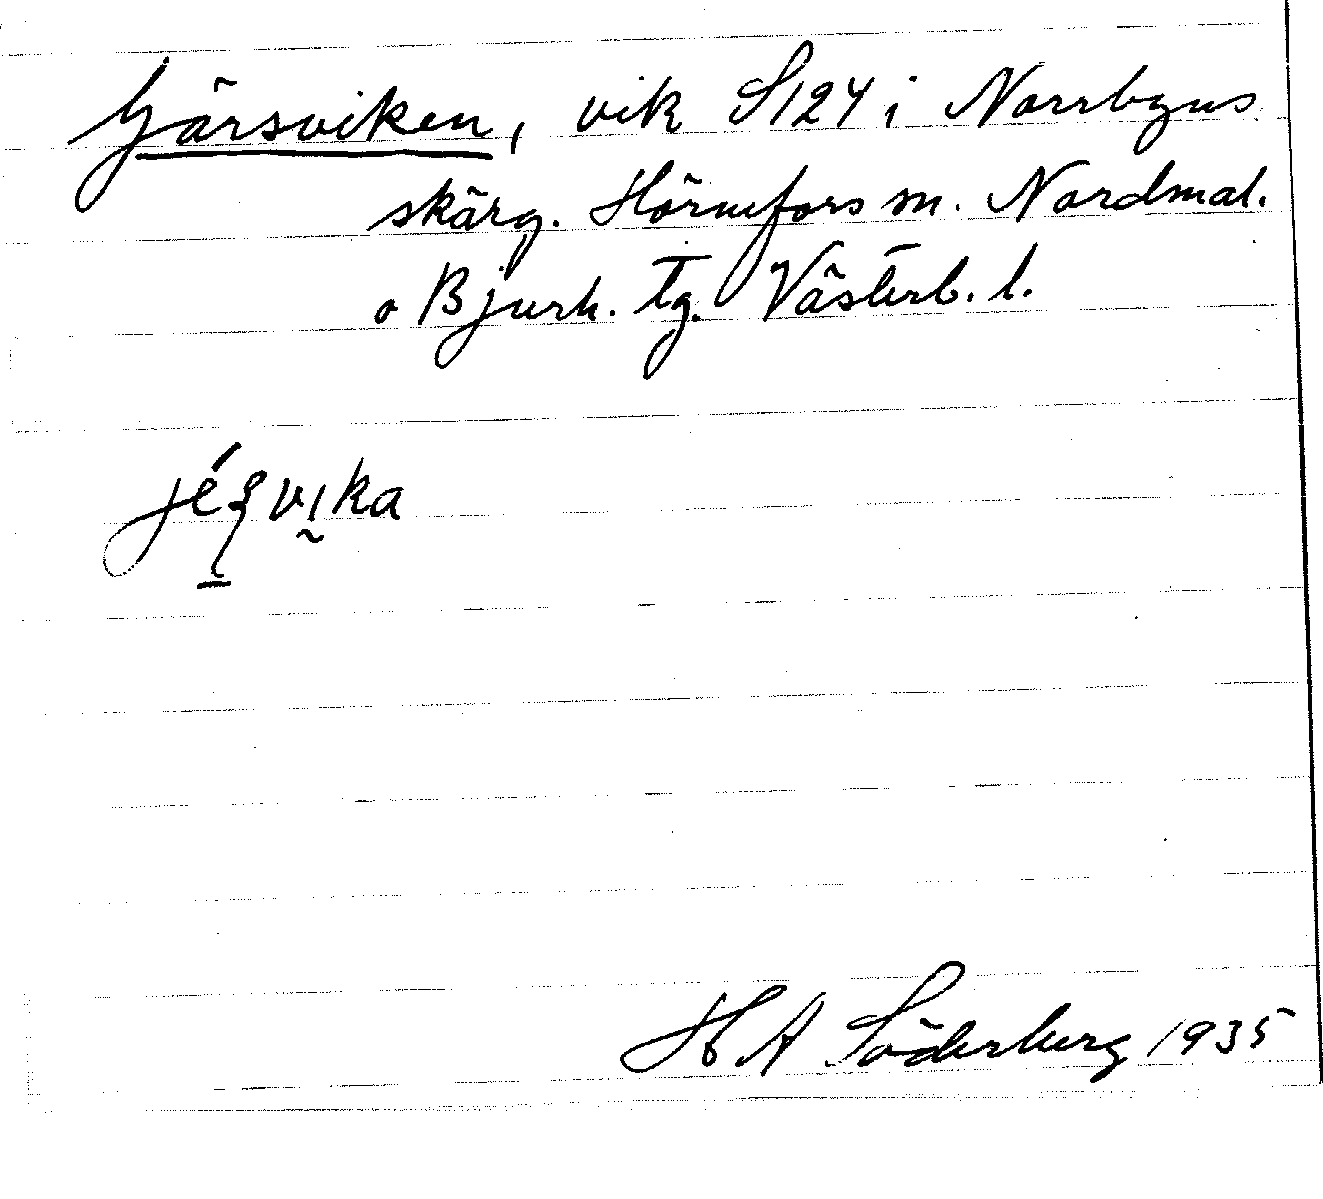 Gärsviken, vik S124 i Norrbyns
skärg. Hörnefors sn. Nordmal.
o Bjurh. tg. Västerb. l.
vika
H A Söderberg 1935